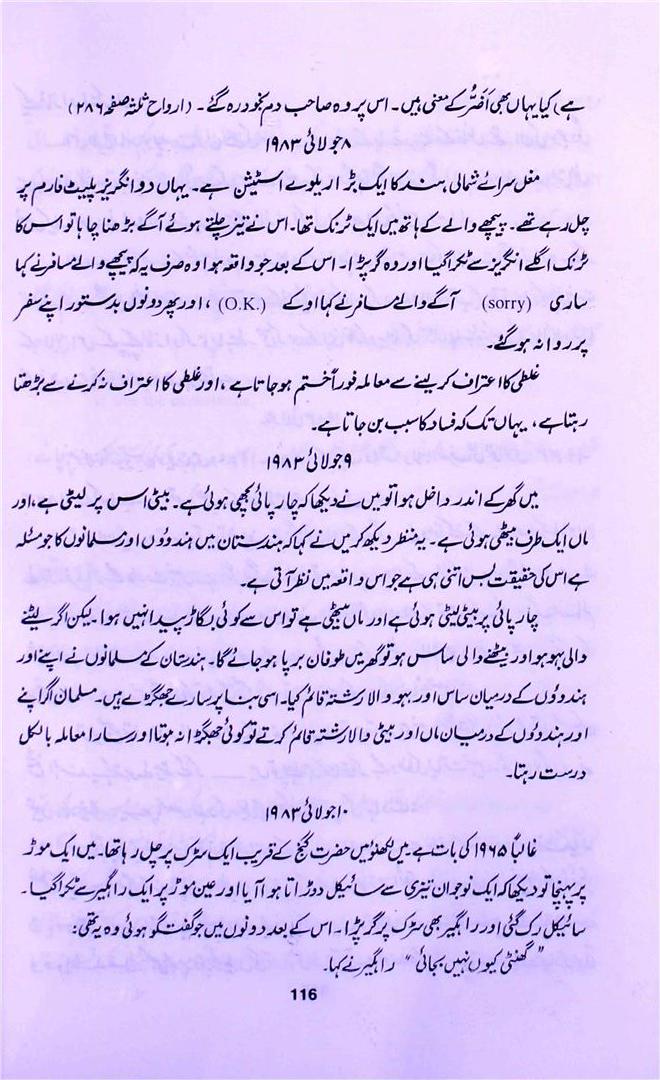 ہے) کیا یہاں بھی اَضَرُّ کے معنی ہیں۔ اس پر وہ صاحب دم بخود رہ گئے۔ (ارواح ثلٰثہ صفحہ ۲۸۶)
۸ جولائی ۱۹۸۳
مغل سرائے شمالی ہند کا ایک بڑا ریلوے اسٹیشن ہے۔ یہاں دو انگریز پلیٹ فارم پر
چل رہے تھے۔ پیچھے والے کے ہاتھ میں ایک ٹرنک تھا۔ اس نے تیز چلتے ہوئے آگے بڑھنا چاہا تو اس کا
ٹرنک اگلے انگریز سے ٹکرا گیا اور وہ گر پڑا۔ اس کے بعد جو واقعہ ہوا وہ صرف یہ کہ پیچھے والے مسافر نے کہا
ساری (sorry) آگے والے مسافر نے کہا اوکے (O.K.) ، اور پھر دونوں بدستور اپنے سفر
پر روانہ ہو گئے۔
غلطی کا اعتراف کرلینے سے معاملہ فوراً ختم ہو جاتا ہے ، اور غلطی کا اعتراف نہ کرنے سے بڑھتا
رہتا ہے ، یہاں تک کہ فساد کا سبب بن جاتا ہے۔
۹ جولائی ۱۹۸۳
میں گھر کے اندر داخل ہوا تو میں نے دیکھا کہ چارپائی بچھی ہوئی ہے۔ بیٹی اس پر لیٹی ہے ، اور
ماں ایک طرف بیٹھی ہوئی ہے۔ یہ منظر دیکھ کر میں نے کہا کہ ہندستان میں ہندوؤں اور مسلمانوں کا جو مسئلہ
ہے اس کی حقیقت بس اتنی ہی ہے جو اس واقعہ میں نظر آتی ہے۔
چارپائی پر بیٹی لیٹی ہوئی ہے اور ماں بیٹھی ہے تو اس سے کوئی بگاڑ پیدا نہیں ہوا۔ لیکن اگر لیٹنے
والی بہو ہو اور بیٹھنے والی ساس ہو تو گھر میں طوفان برپا ہو جائے گا۔ ہندستان کے مسلمانوں نے اپنے اور
ہندوؤں کے درمیان ساس اور بہو والا رشتہ قائم کیا۔ اسی بنا پر سارے جھگڑے ہیں۔ مسلمان اگر اپنے
اور ہندوؤں کے درمیان ماں اور بیٹی والا رشتہ قائم کرتے تو کوئی جھگڑا نہ ہوتا اور سارا معاملہ بالکل
درست رہتا۔
۱۰ جولائی ۱۹۸۳
غالباً ۱۹۶۵ کی بات ہے میں لکھنؤ میں حضرت گنج کے قریب ایک سڑک پر چل رہا تھا۔ میں ایک موڑ
پر پہنچا تو دیکھا کہ ایک نوجوان تیزی سے سائیکل دوڑاتا ہوا آیا اور عین موڑ پر ایک راہگیر سے ٹکرا گیا۔
سائیکل رک گئی اور راہگیر بھی سڑک پر گر پڑا۔ اس کے بعد دونوں میں جو گفتگو ہوئی وہ یہ تھی:
"گھنٹی کیوں نہیں بجائی" راہگیر نے کہا۔
116